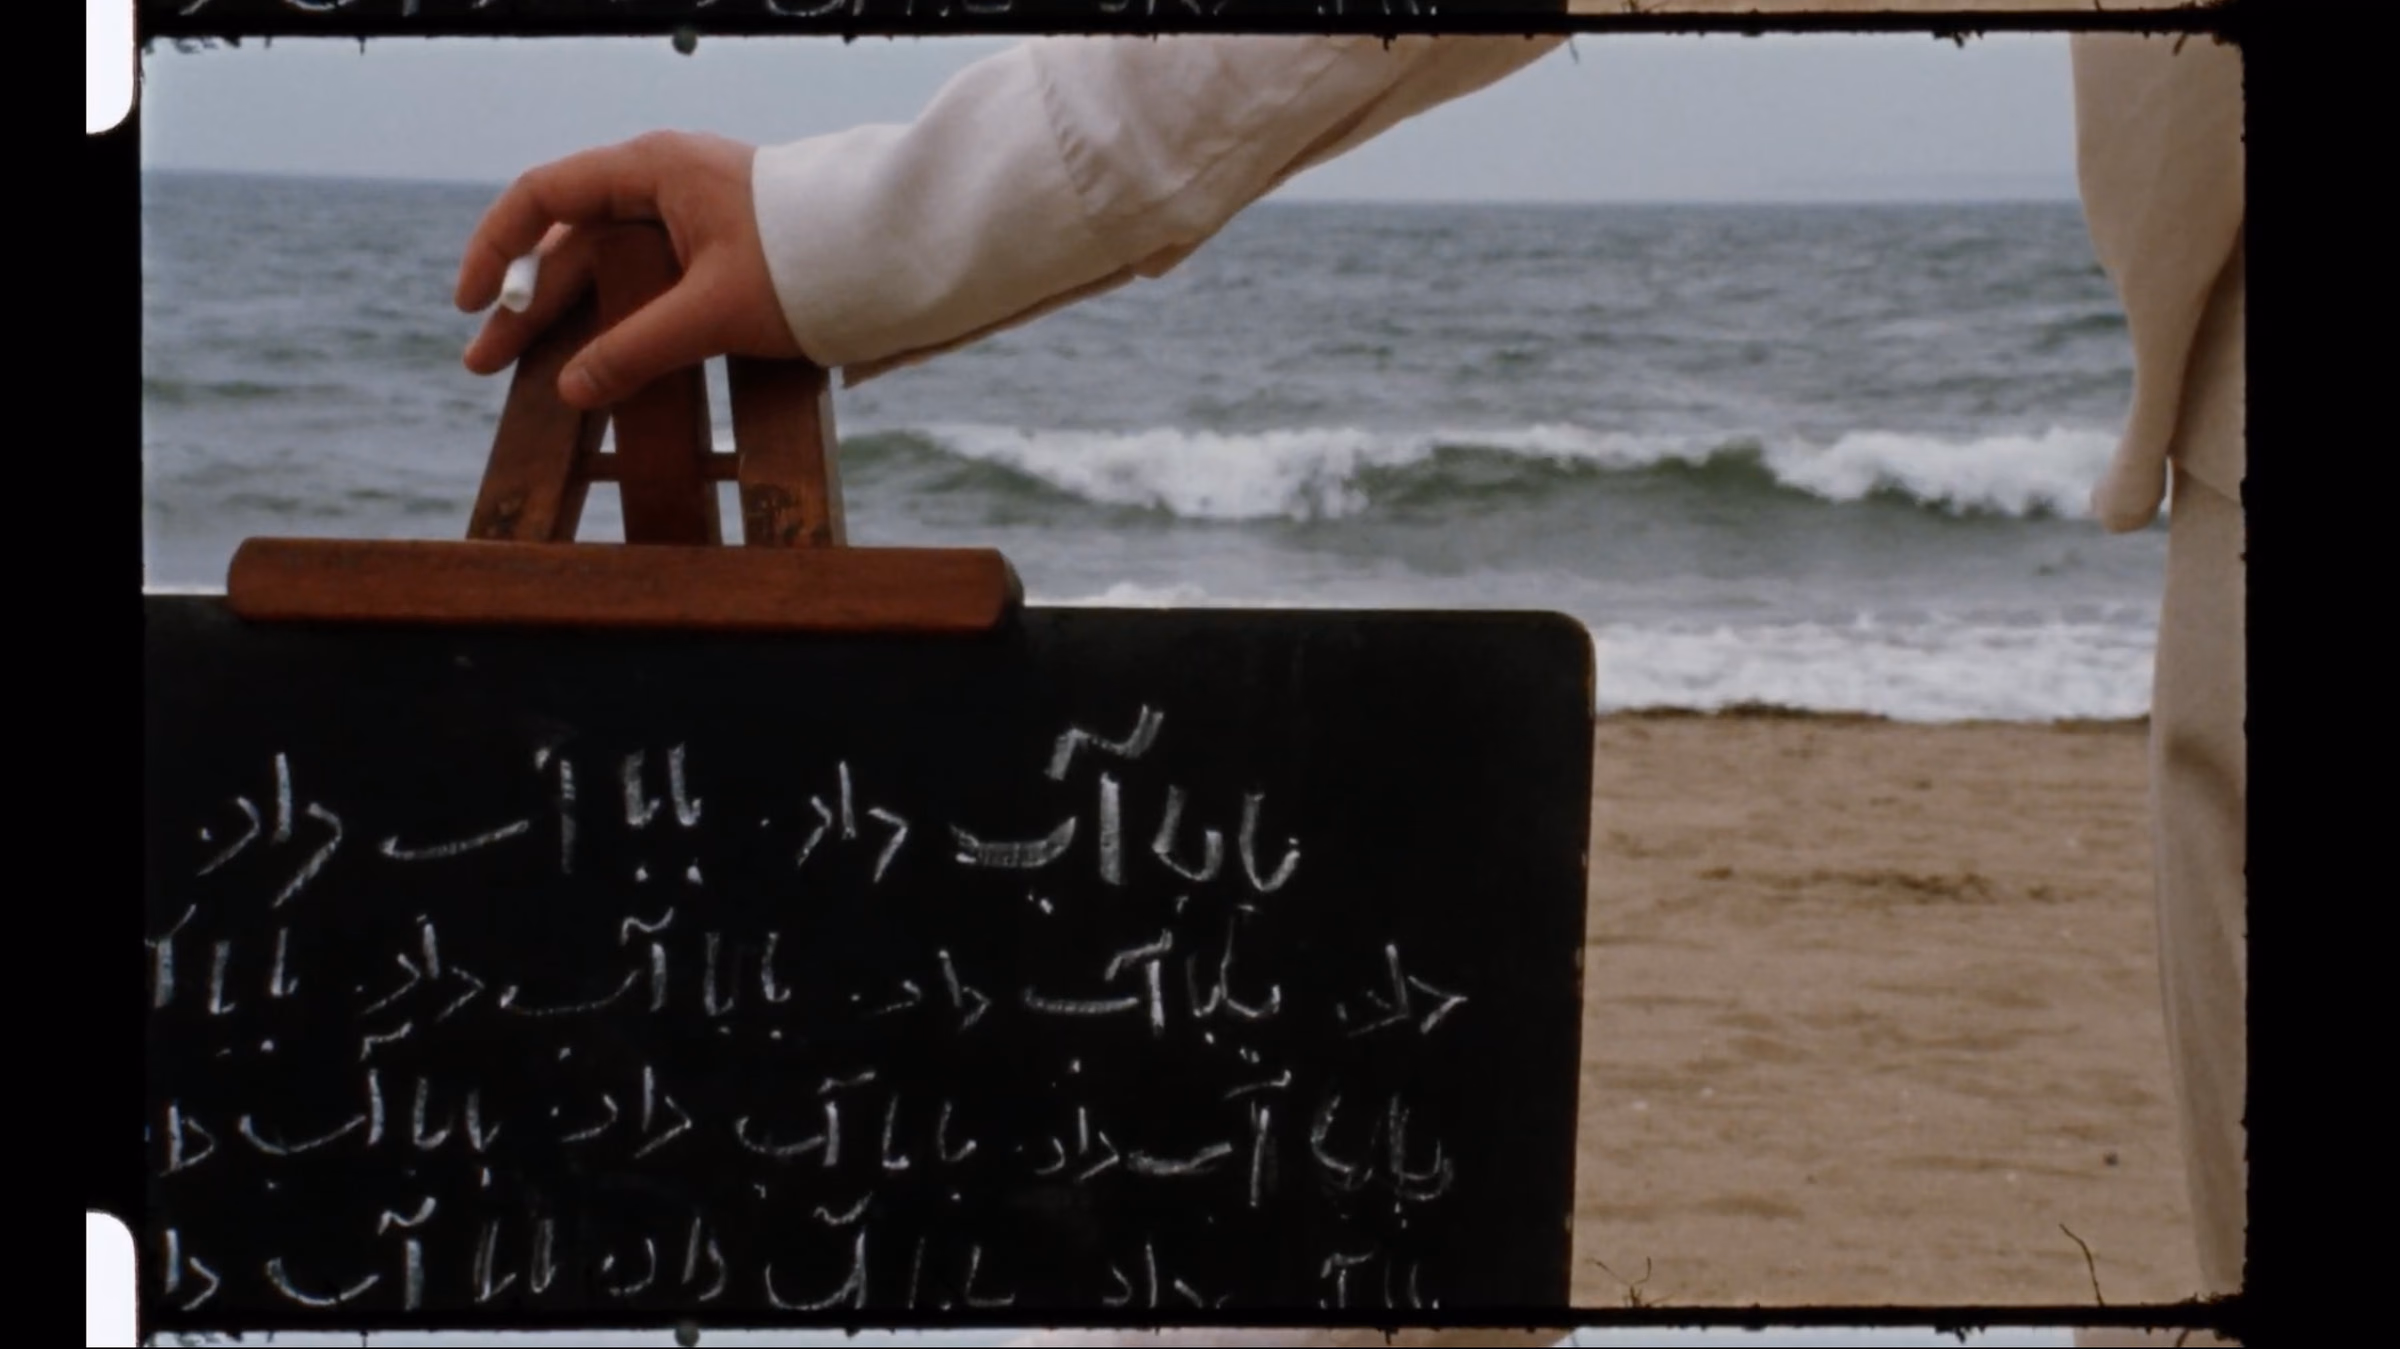 بابا آب داد. بابا آب داد.
داد. بابا آب داد. بابا آب داد. بابا آ
بابا آب داد. بابا آب داد. بابا آب د
بابا آ داد بابا آب داد. بابا آب دا